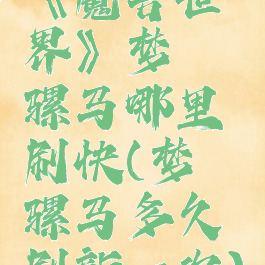 《魔兽世
界》梦
骡马哪里
刷快(梦
骡马多久
刷新一次)